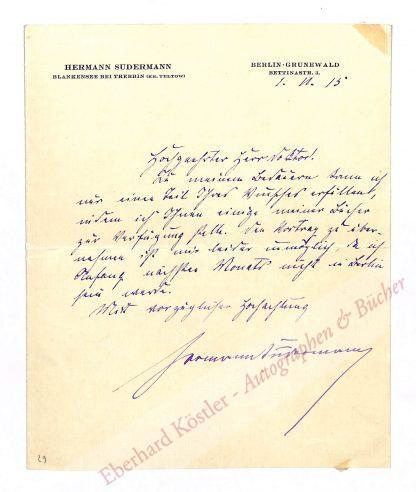 HERMANN SUDERMANN
BLANKENSEE BEI TREBBIN (KR. TELTOW)
BERLIN-GRUNEWALD
BETTINASTR. 3.
1. 11. 15
Hochgeehrter Herr Doktor!
Zu meinem Bedauern kann ich
nur einen Teil Ihres Wunsches erfüllen,
indem ich Ihnen einige meiner Bücher
zur Verfügung stelle. Den Vortrag zu über-
nehmen ist mir leider unmöglich, da ich
Anfang nächsten Monats nicht in Berlin
sein werde.
Mit vorzüglicher Hochachtung
Hermann Sudermann
Eberhard Köstler - Autographen & Bücher
29